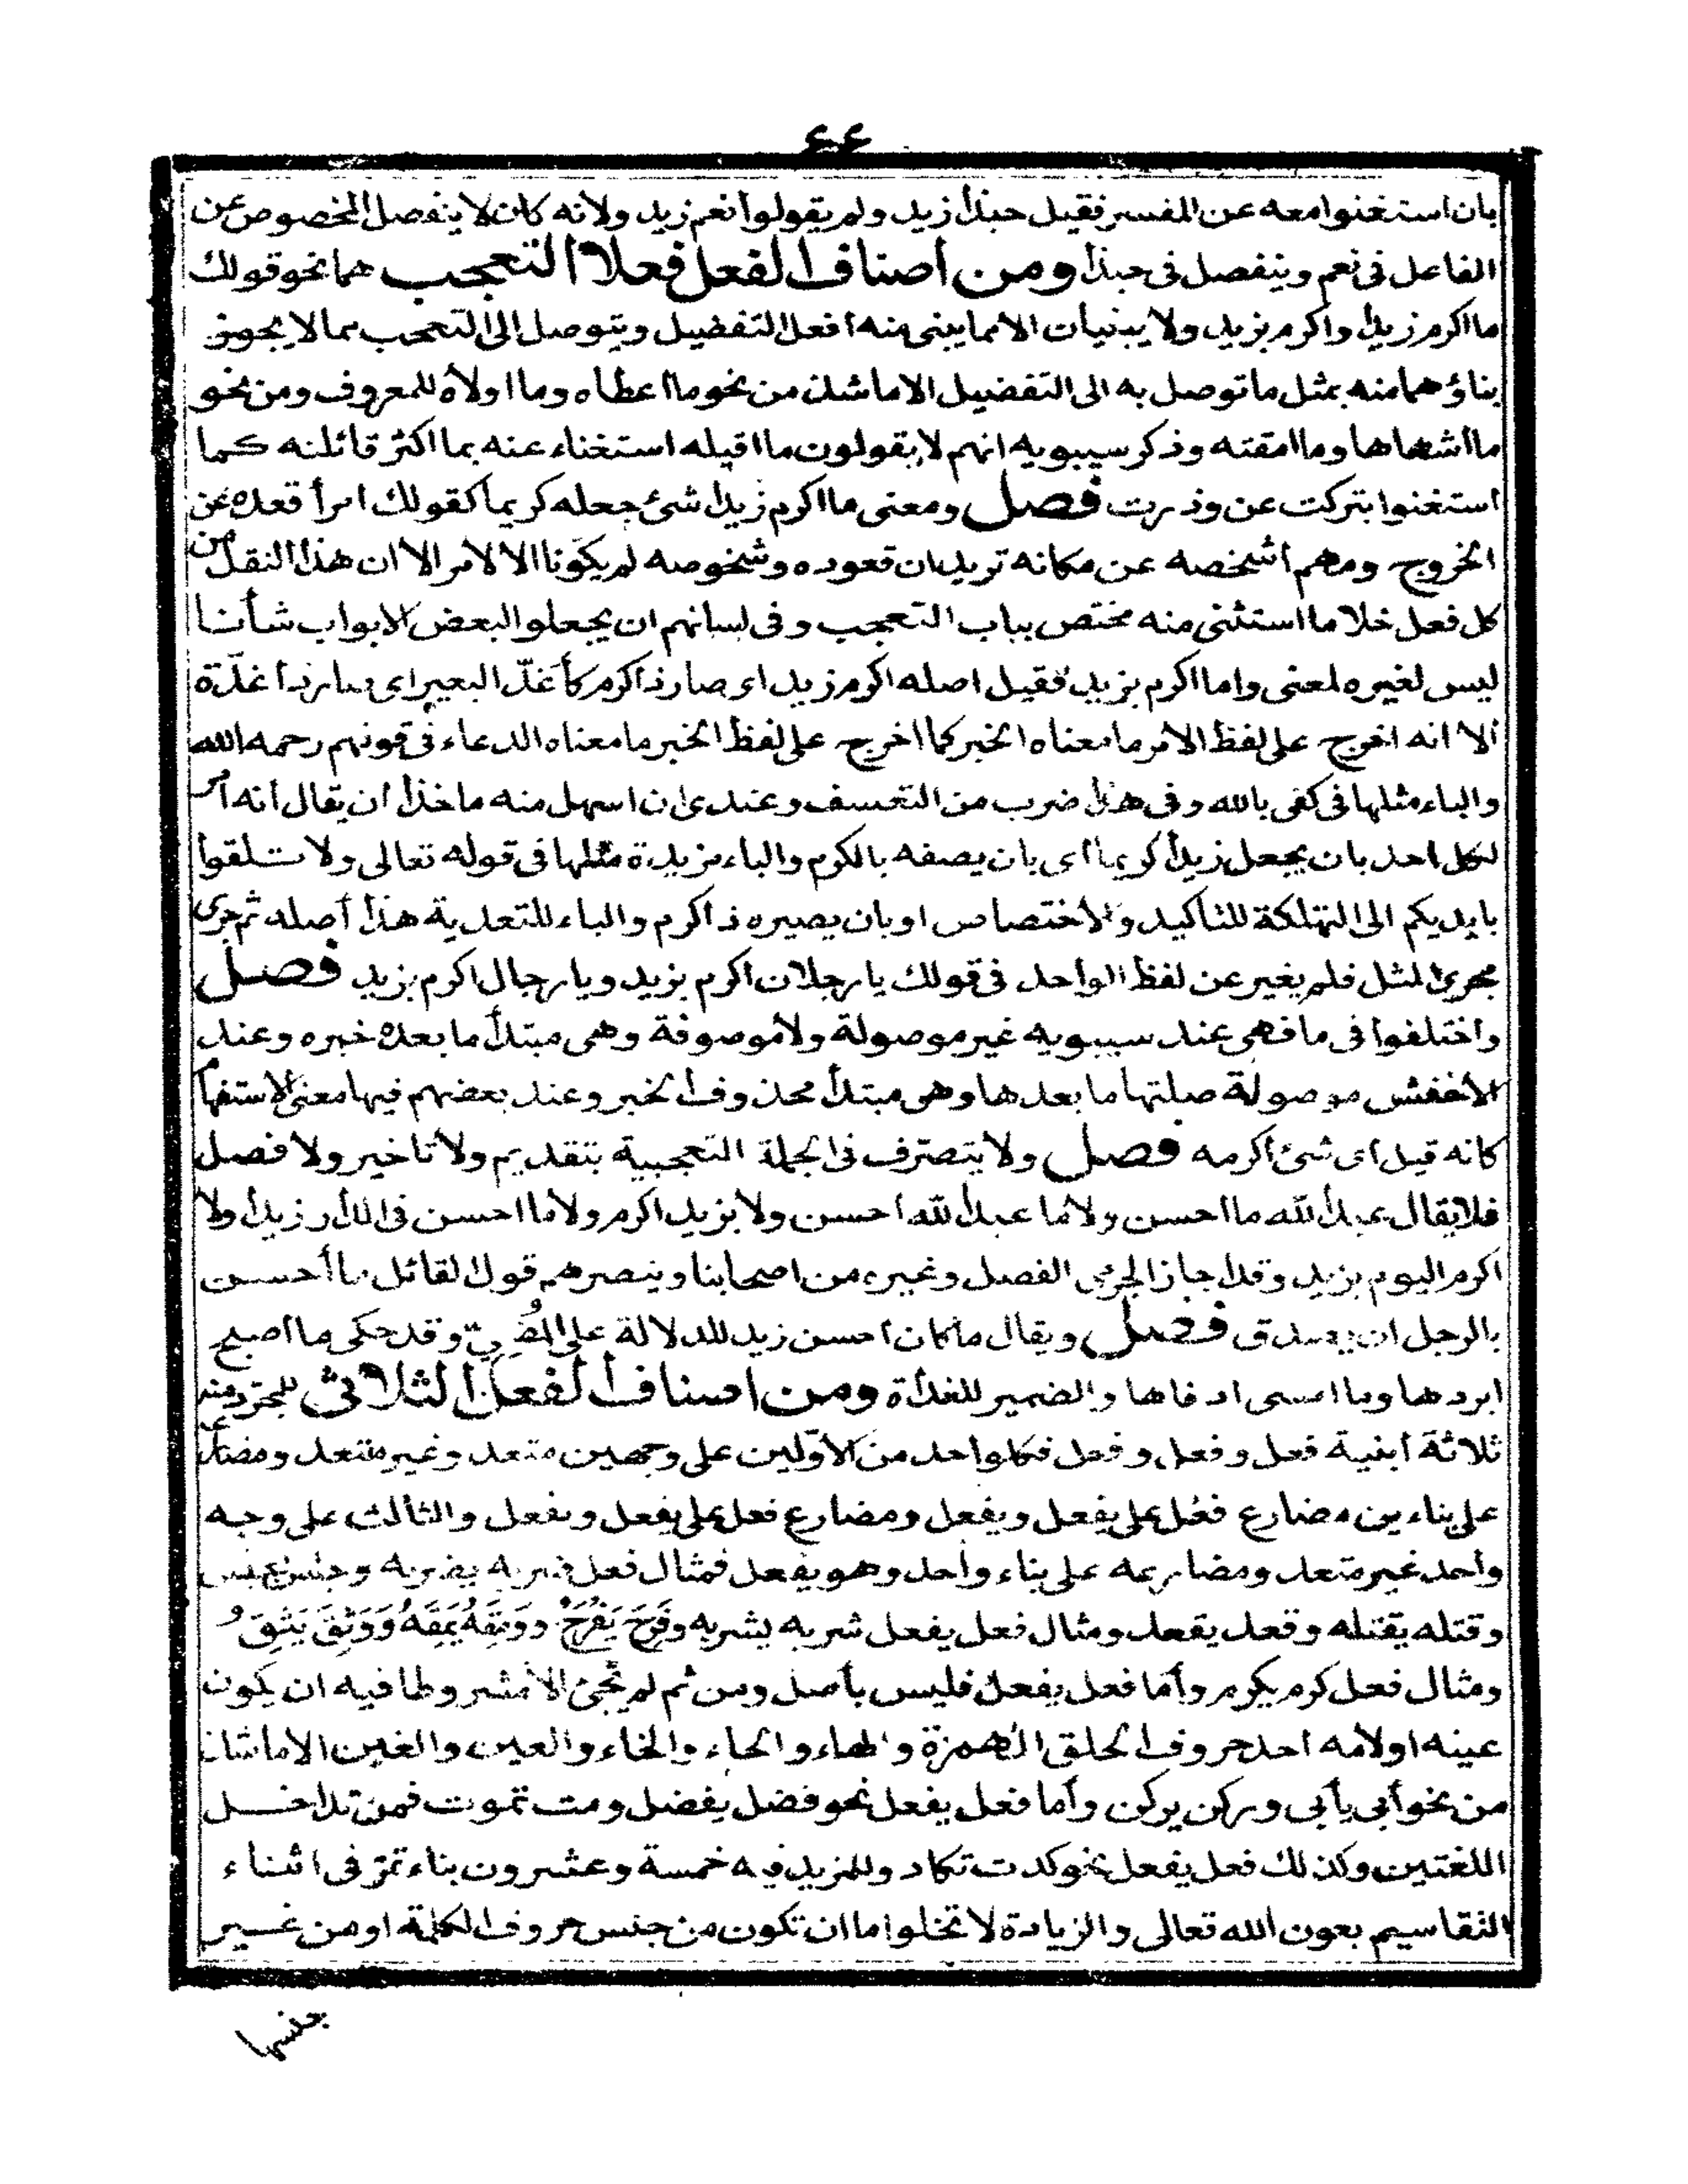 ٤٤
بان استغنوا معه عن المفسر فقيل حبذا زيد ولم يقولوا نعم زيد ولانه كان لا ينفصل المخصوص عن
الفاعل فى نعم وينفصل فى حبذا ومن اصناف الفعل فعلا التعجب هما نحو قولك
ما اكرم زيدا واكرم بزيد ولا يبنيان الا مما يبنى منه افعل التفضيل ويتوصل الى التعجب مما لا يجوز
بناؤهما منه بمثل ما توصل به الى التفضيل الا ما شذ من نحو ما اعطاه وما اولاه للمعروف ومن نحو
ما اشهاها وما امقته وذكر سيبويه انهم لا يقولون ما اقيله استغناء عنه بما اكثر قائلته كما
استغنوا بتركت عن وذرت فصل ومعنى ما اكرم زيدا شئ جعله كريما كقولك امرأ قعده عن
الخروج ومهم أشخصه عن مكانه تريد ان قعوده وشخوصه لم يكونا الا لامر الا ان هذا النقل من
كل فعل خلا ما استثنى منه مختص بباب التعجب وفى لسانهم ان يجعلوا لبعض الابواب شأنا
ليس لغيره لمعنى واما اكرم بزيد فقيل اصله اكرم زيد اى صار ذا كرم كأغدّ البعير اى صار ذا غدّة
الا انه اخرج على لفظ الامر ما معناه الخبر كما اخرج على لفظ الخبر ما معناه الدعاء فى قولهم رحمه الله
والباء مثلها فى كفى بالله وفى هذا ضرب من التعسف وعندى ان اسهل منه ماخذا ان يقال انه امر
لكل احد بان يجعل زيدا كريما اى بان يصفه بالكرم والباء مزيدة مثلها فى قوله تعالى ولا تلقوا
بايديكم الى التهلكة للتأكيد والاختصاص او بان يصيره ذا كرم والباء للتعدية هذا أصله ثم جرى
مجرى المثل فلم يغير عن لفظ الواحد فى قولك يا رجلان اكرم بزيد ويا رجال اكرم بزيد فصل
واختلفوا فى ما فهى عند سيبويه غير موصولة ولا موصوفة وهى مبتدأ ما بعده خبره وعند
الأخفش موصولة صلتها ما بعدها وهى مبتدأ محذوف الخبر وعند بعضهم فيها معنى الاستفهام
كانه قيل اى شئ اكرمه فصل ولا يتصرّف فى الجملة التعجبية بتقديم ولا تاخير ولا فصل
فلا يقال عبد الله ما احسن ولا ما عبد الله احسن ولا بزيد اكرم ولا ما احسن فى الدار زيدا ولا
اكرم اليوم بزيد وقد اجاز الجرمى الفصل وغيره من اصحابنا وينصرهم قول القائل ما أحسن
بالرجل ان يصدق فصل ويقال ما كان احسن زيد للدلالة على المُضِيّ وقد حكى ما اصبح
ابردها وما امسى ادفاها والضمير للغداة ومن اصناف الفعل الثلاثى للمجرّد منه
ثلاثة أبنية فعل وفعل وفعل فكل واحد من الأوّلين على وجهين متعد وغير متعد ومضارع
على بناءين مضارع فعل على يفعل ويفعل ومضارع فعل على يفعل ويفعل والثالث على وجه
واحد غير متعد ومضارعه على بناء واحد وهو يفعل فمثال فعل ضربه يضربه وجلس يجلس
وقتله يقتله وقعد يقعد ومثال فعل يفعل شربه يشربه وفَرِحَ يَفْرَحُ وومِقَهُ يَمِقَهُ وَوَثِقَ يَثِقُ
ومثال فعل كرم يكرم وأما فعل يفعل فليس بأصل ومن ثم لم يجئ الا مشروطا فيه ان يكون
عينه اولامه احد حروف الحلق الهمزة والهاء والحاء والخاء والعين والغين الا ما شذ
من نحو أبى يأبى وركن يركن وأما فعل يفعل نحو فضل يفضل ومت تموت فمن تداخل
اللغتين وكذلك فعل يفعل نحو كدت تكاد وللمزيد فيه خمسة وعشرون بناء تمرّ فى اثناء
التقاسيم بعون الله تعالى والزيادة لا تخلوا ما ان تكون من جنس حروف الكلمة او من غير
جنسها